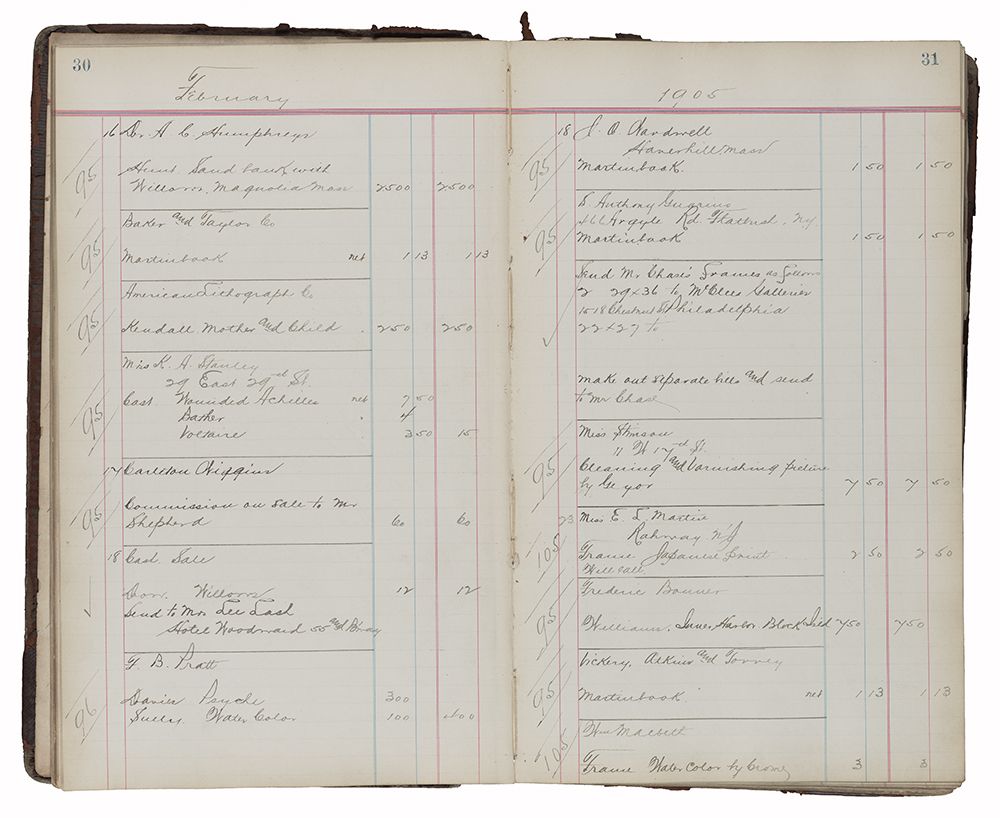 30
February
16 Dr. A C Humphreys
Hunt Sand bank with
95 Willows, Magnolia Mass 2500 2500
Baker and Taylor Co
95 Martinbook net 1 13 1 13
American Lithograph Co
95 Kendall, Mother and Child 250 250
Miss K. A. Stanley
29 East 29th St.
Cast Wounded Achilles net 7 50
95 Barker " 4
Voltaire 3 50 15
17 Carlton Wiggins
Commission on sale to Mr
95 Shepherd 60 60
18 Cash Sale
Dow. Willows 12 12
Send to Mrs Lee Lash
Hotel Woodward 55 and B'way
F. B. Pratt
Davies Psyche 300
96 Sully, Water Color 100 400
31
1905
18 J. O. Wardwell
Haverhill, Mass
95 Martinbook. 1 50 1 50
S. Anthony
466 Argyle Rd. Flatbush, Ny.
95 Martinbook 1 50 1 50
Send Mr Chase's Frames as follows
2 29x36 to McClees Galleries
1518 Chestnut St Philadelphia
22x27 to
make out separate bills and send
to Mr Chase
Miss Stimson
11 W 17th St.
95 Cleaning and Varnishing picture
by 7 50 7 50
23 Miss E. L. Martin
Rahway, NJ
105 Frame Japanese print 2 50 2 50
Will call
Frederic Bonner
95 William, Inner Harbor. Block Isld 750 750
Vickery, Atkins and Torrey
95 Martinbook net 1 13 1 13
Wm Macbeth
105 Frame Water color by 3 3